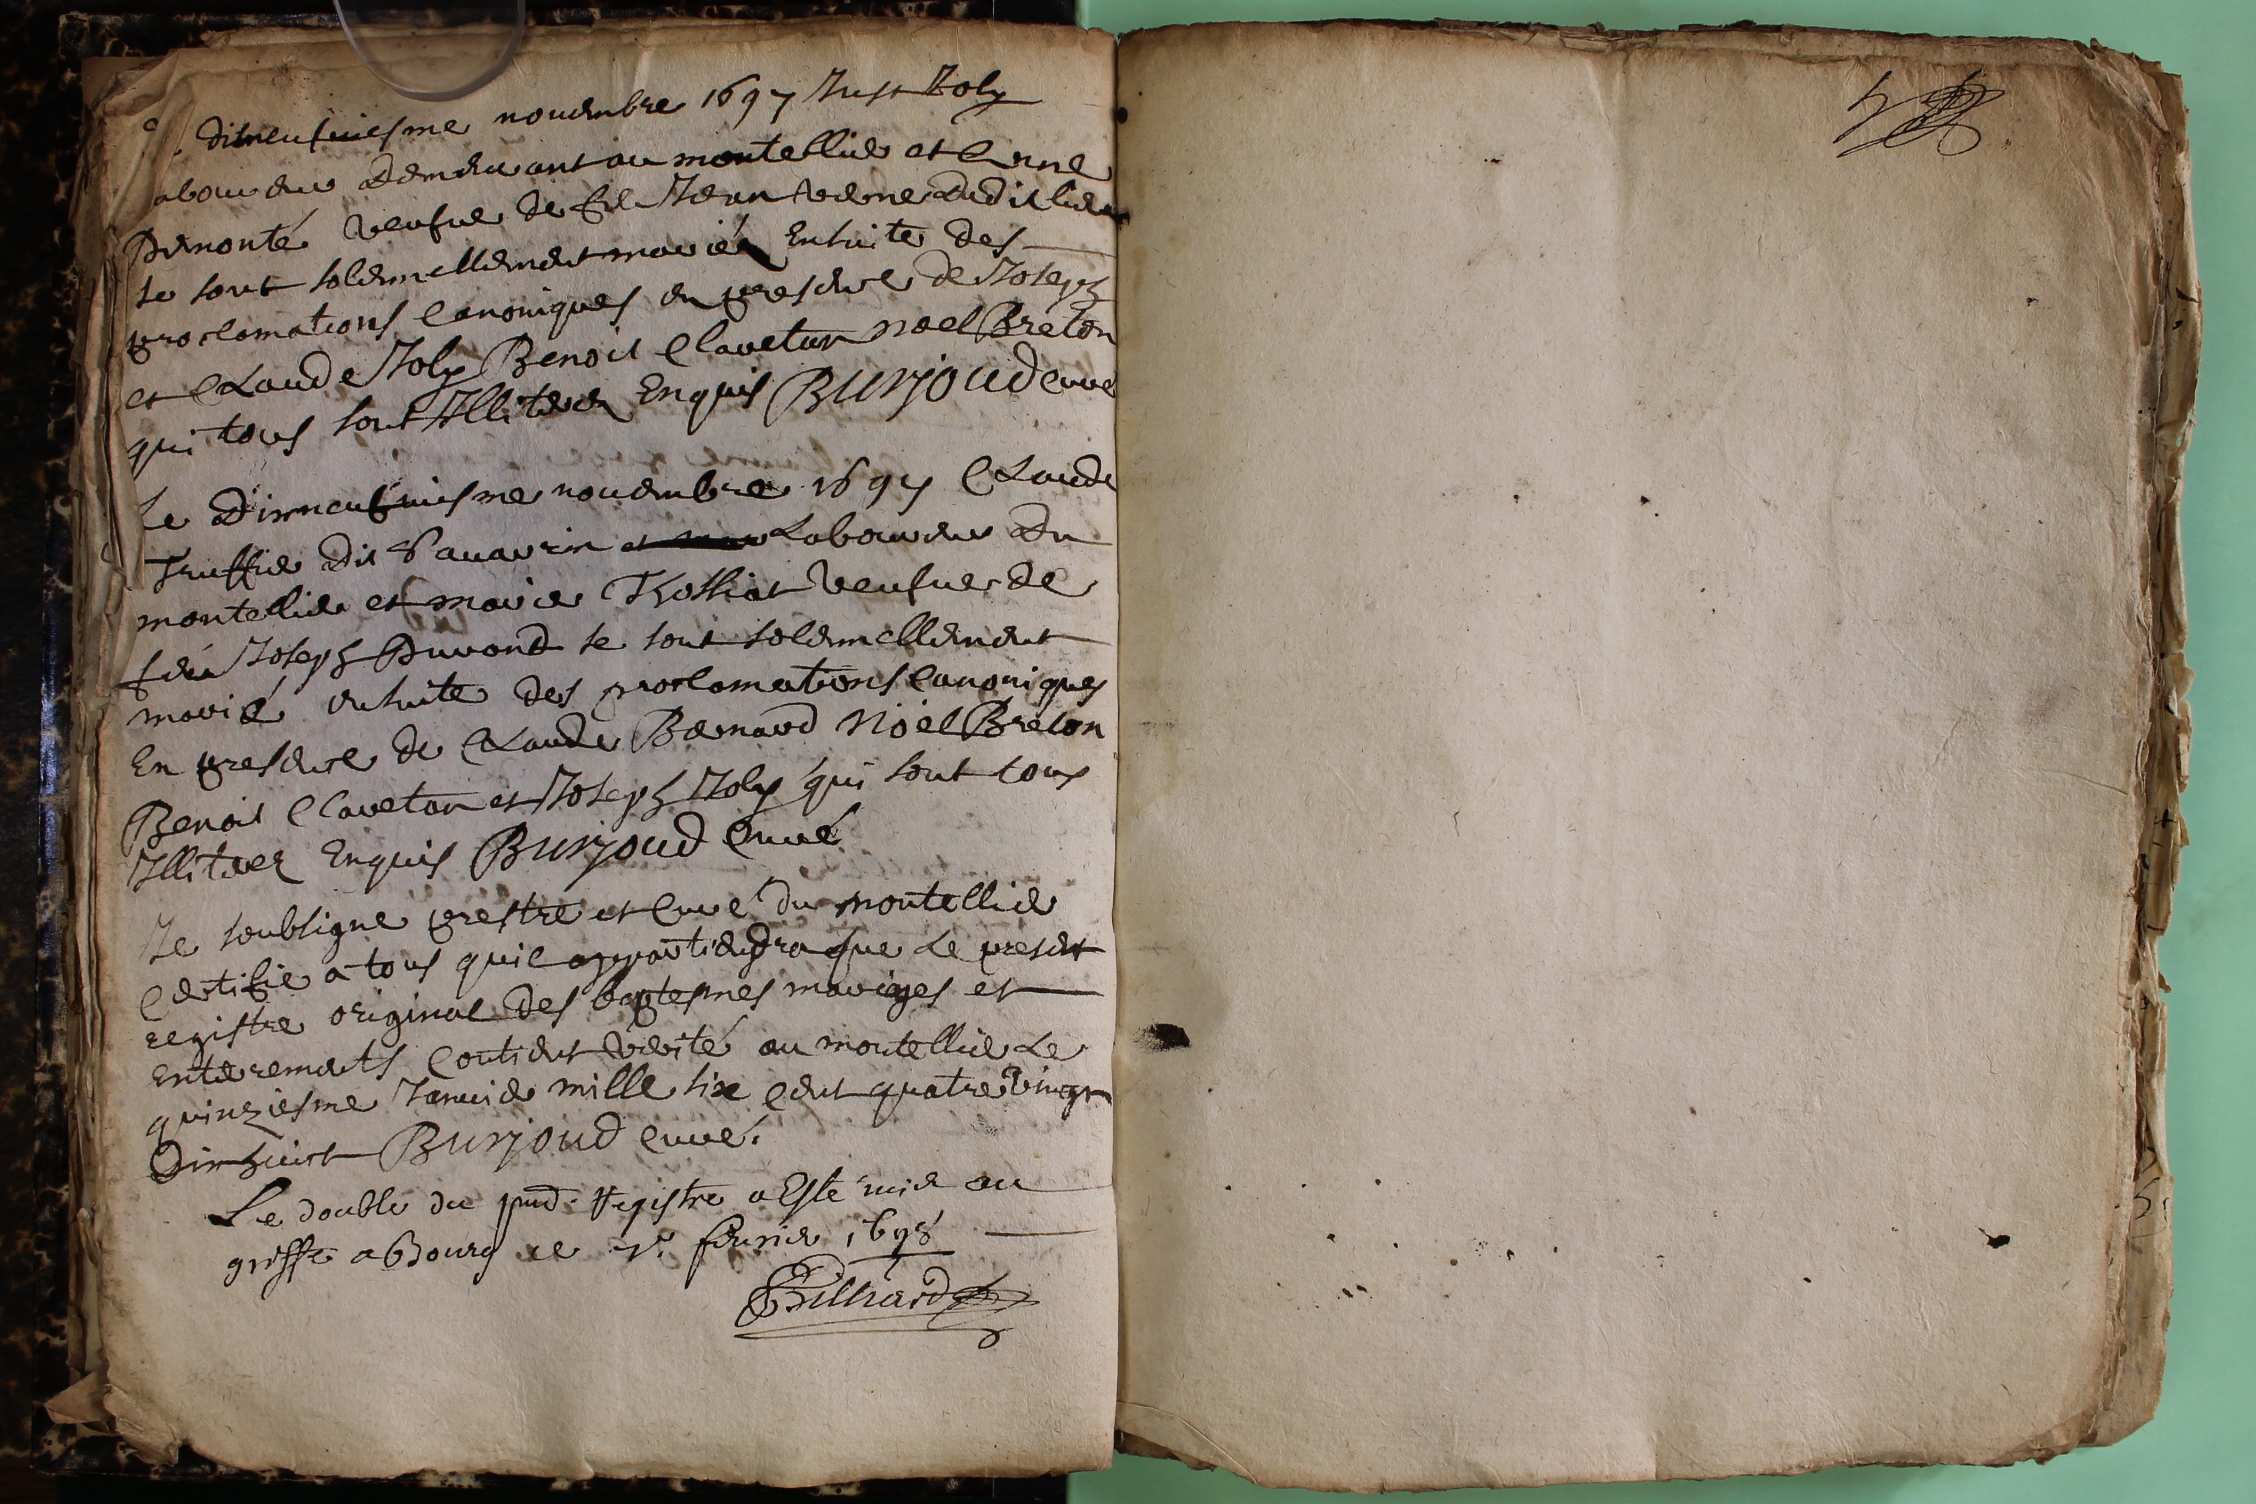 ditneufuiesme nouembre 1697 Just Joly
laboureur demeurant au montellier et Anne
Demonté veufue de feu Jean verne dudit lieu
se sont solemnellement mariéz Ensuite des
proclamations Canoniques en presence de Joseph
et Claude Joly Benoit Clauetan noel Breton
qui tous sont Illiterez Enquis Burjoud curé
Le Dixneufuiesme nouembre 1697 Claude
Truffier dit Sauarin Laboureur du
montellier et marie Thollias veufue de
feu Joseph Durand se sont solemnellement
marié ensuite des proclamations Canoniques
En presence de Claude Bernard Noël Breton
Benoit Clauetan et Joseph Joly qui sont tous
Illiterez Enquis Burjoud Curé
Je soubsigne prestre et Curé du montellier
Certifie a tous quil appartiendra que Le present
registre original des baptesmes mariages et
Enterements Contient verité au montellier Le
quinziesme Januier mille six Cent quatre vingt
Dixhuict Burjoud curé.
Le double du pnd. Registre a Esté mis au
greffe a Bourg ce feurier 1698